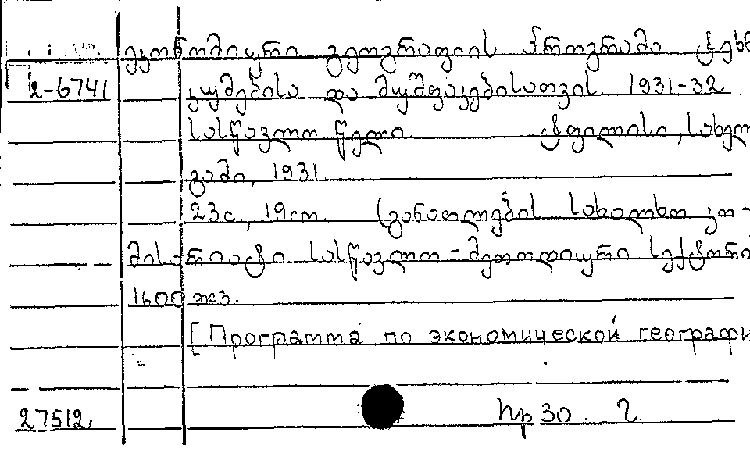 ეკონომიური გეოგრაფიის პროგრამა ტექნ
2-6741 კუმებისა და მუშფაკებისათვის. 1931-32
სასწავლო წელი. ტფილისი, სახელ
გამი, 1931.
23с., 19см. (განათლების სახალხო კო-
მისარიატი სასწავლო-მეთოდიური სექტორი
1600 экз.
[Программа по экономической географи
27512. Пр 30.